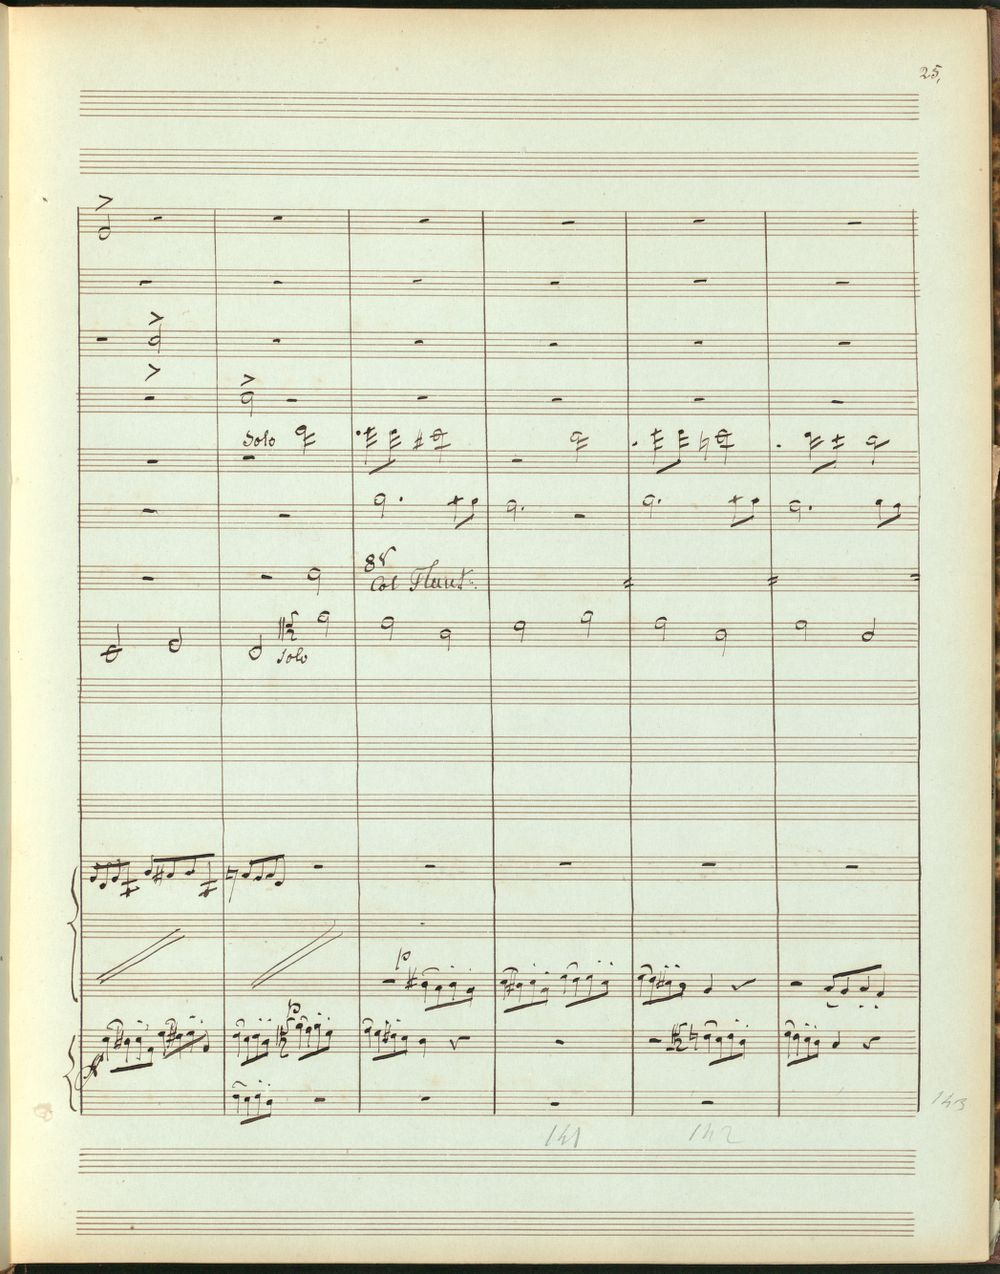 25,
Solo
8v
Col Flaut:
Solo
p
p
141
142
143